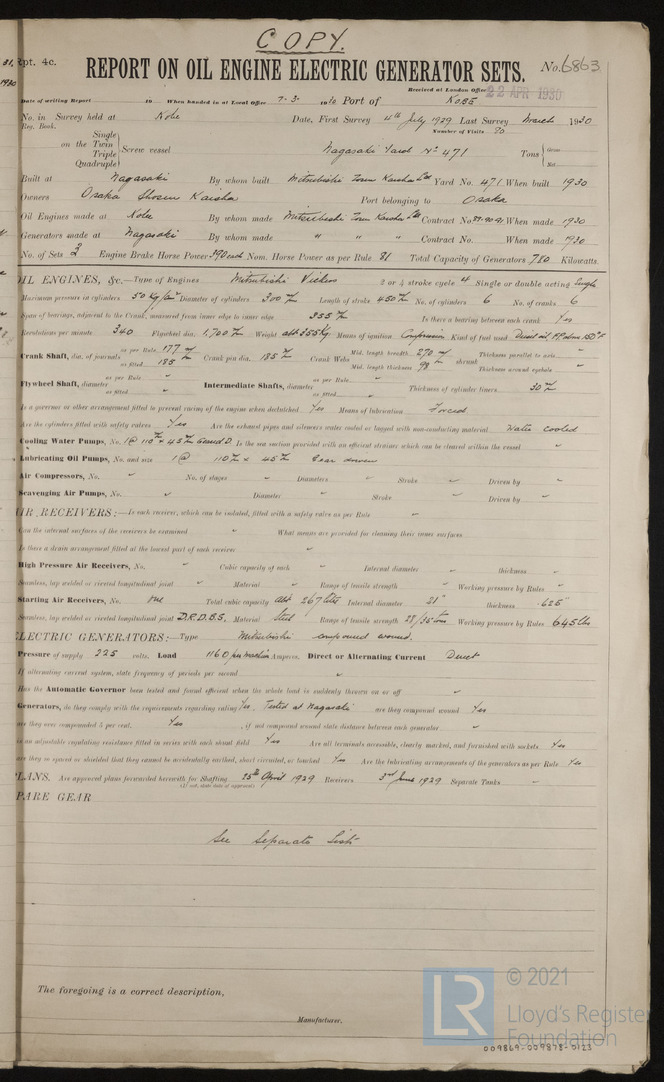 COPY.
Rpt. 4c.
REPORT ON OIL ENGINE ELECTRIC GENERATOR SETS.
No. 6863
Received at London Office 22 APR 1930
Date of writing Report 19 When handed in at Local Office 7-3- 1930 Port of KOBE
No. in Survey held at Kobe Date, First Survey 4th July 1929 Last Survey March 1930
Reg. Book. Number of Visits 20
Single
on the Twin Screw vessel Nagasaki Yard No 471 Tons
Triple
Quadruple
Built at Nagasaki By whom built Mitsubishi Zosen Kaisha Ltd Yard No. 471 When built 1930
Owners Osaka Shosen Kaisha Port belonging to Osaka
Oil Engines made at Kobe By whom made Mitsubishi Zosen Kaisha Ltd Contract No. 89.90.91 When made 1930
Generators made at Nagasaki By whom made " " " Contract No. When made 1930
No. of Sets Engine Brake Horse Power 390 each Nom. Horse Power as per Rule 81 Total Capacity of Generators 780 Kilowatts.
OIL ENGINES, &c.—Type of Engines Mitsubishi Vickers 2 or 4 stroke cycle 4 Single or double acting Single
Maximum pressure in cylinders 50 Kg/cm² Diameter of cylinders 300 m/m Length of stroke 450 m/m No. of cylinders 6 No. of cranks 6
Span of bearings, adjacent to the Crank, measured from inner edge to inner edge 355 m/m Is there a bearing between each crank Yes
Revolutions per minute 340 Flywheel dia. 1,700 m/m Weight Means of ignition Compression Kind of fuel used Diesel oil, F.P. above 150°F
Crank Shaft, dia. of journals as per Rule 177 m/m as fitted 185 m/m Crank pin dia. 185 m/m Crank Webs Mid. length breadth 270 m/m Mid. length thickness 98 m/m shrunk Thickness parallel to axis Thickness around eyehole
Flywheel Shaft, diameter as per Rule as fitted Intermediate Shafts, diameter as per Rule as fitted Thickness of cylinder liners 30 m/m
Is a governor or other arrangement fitted to prevent racing of the engine when declutched Yes Means of lubrication Forced
Are the cylinders fitted with safety valves Yes Are the exhaust pipes and silencers water cooled or lagged with non-conducting material Water cooled
Cooling Water Pumps, No. 1 @ 110 m/m × 45 m/m Geared D. Is the sea suction provided with an efficient strainer which can be cleared within the vessel
Lubricating Oil Pumps, No. and size 1 @ 110 m/m × 45 m/m Gear driven
Air Compressors, No. No. of stages Diameters Stroke Driven by
Scavenging Air Pumps, No. Diameter Stroke Driven by
AIR RECEIVERS:—Is each receiver, which can be isolated, fitted with a safety valve as per Rule
Can the internal surfaces of the receivers be examined What means are provided for cleaning their inner surfaces
Is there a drain arrangement fitted at the lowest part of each receiver
High Pressure Air Receivers, No. Cubic capacity of each Internal diameter thickness
Seamless, lap welded or riveted longitudinal joint Material Range of tensile strength Working pressure by Rules
Starting Air Receivers, No. One Total cubic capacity abt 267 litres Internal diameter 21" thickness .625"
Seamless, lap welded or riveted longitudinal joint D.R.D.B.S. Material Steel Range of tensile strength 28/35 tons Working pressure by Rules 645 lbs
ELECTRIC GENERATORS:—Type Mitsubishi compound wound.
Pressure of supply 225 volts. Load 1160 per machine Amperes. Direct or Alternating Current Direct
If alternating current system, state frequency of periods per second
Has the Automatic Governor been tested and found efficient when the whole load is suddenly thrown on or off
Generators, do they comply with the requirements regarding rating Yes. Tested at Nagasaki are they compound wound Yes
are they over compounded 5 per cent. Yes , if not compound wound state distance between each generator
Is an adjustable regulating resistance fitted in series with each shunt field Yes Are all terminals accessible, clearly marked, and furnished with sockets Yes
Are they so spaced or shielded that they cannot be accidentally earthed, short circuited, or touched Yes Are the lubricating arrangements of the generators as per Rule Yes
PLANS. Are approved plans forwarded herewith for Shafting 25th April 1929 Receivers 3rd June 1929 Separate Tanks
(If not, state date of approval)
SPARE GEAR
See Separate List
The foregoing is a correct description,
Manufacturer.
LR
© 2021
Lloyd's Register
Foundation
009869-009878-0123